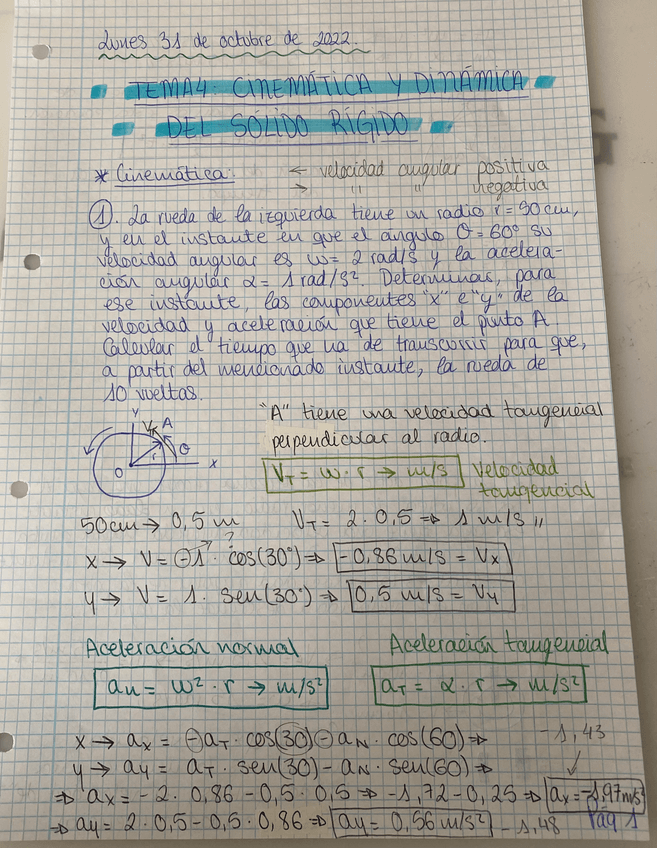 Lunes 31 de octubre de 2022.
TEMA4: CINEMÁTICA Y DINÁMICA
DEL SÓLIDO RÍGIDO
* Cinemática:
← velocidad angular positiva
→ " " negativa
①. La rueda de la izquierda tiene un radio r=50cm,
y en el instante en que el ángulo θ=60° su
velocidad angular es w= 2 rad/s y la acelera-
ción angular α= 1 rad/s². Determinar, para
ese instante, las componentes "x" e "y" de la
velocidad y aceleración que tiene el punto A.
Calcular el tiempo que ha de transcurrir para que,
a partir del mencionado instante, la rueda de
10 vueltas.
Y
A
r
θ
O
X
"A" tiene una velocidad tangencial
perpendicular al radio.
VT = w · r → m/s
Velocidad
tangencial
50cm → 0,5 m
VT = 2 · 0,5 ⇒ 1 m/s "
x → V = ⊖1 · cos(30°) ⇒ -0,86 m/s = Vx
?
y → V = 1 · sen(30°) ⇒ 0,5 m/s = Vy
Aceleración normal
Aceleración tangencial
an = w² · r → m/s²
aT = α · r → m/s²
x → ax = ⊖aT · cos(30) ⊖ aN · cos(60) ⇒
-1,43
y → ay = aT · sen(30) - aN · sen(60) ⇒
⇒ ax = -2 · 0,86 - 0,5 · 0,5 ⇒ -1,72 - 0,25 ⇒ ax = -1,97 m/s²
⇒ ay = 2 · 0,5 - 0,5 · 0,86 ⇒ ay = 0,56 m/s²
-1,48